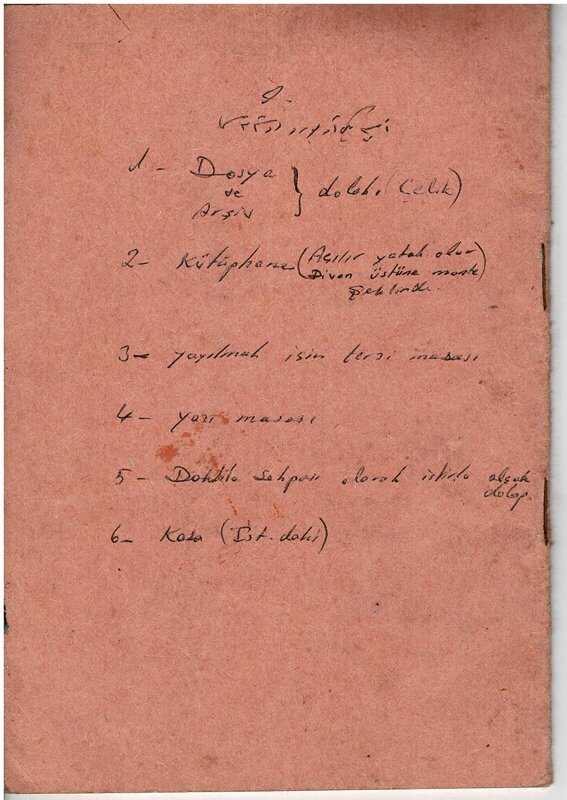 1 - Dosya
ve
Arşiv
} dolabı (Çelik)
2 - Kütüphane (Açılır yatak olur
Divan üstüne monte
şeklinde.
3 - yayılmak için terzi masası
4 - yazı masası
5 - Daktilo Sehpası olarak alçak
dolap.
6 - Kasa (İst. daki)